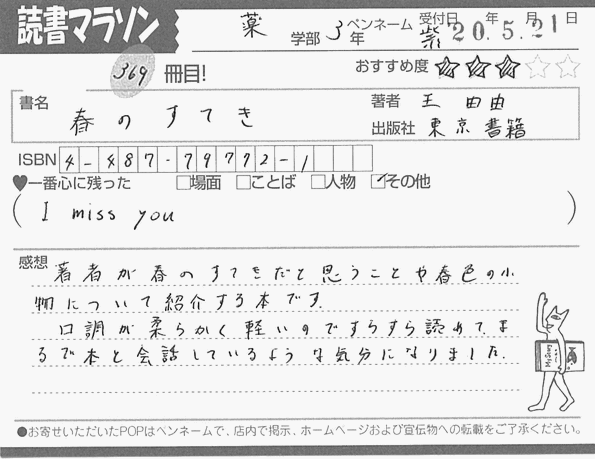 読書マラソン
薬 学部 3年 ペンネーム 紫 受付日 20年5月21日
369冊目!
おすすめ度 ★★★☆☆
書名 春のすてき
著者 王由由
出版社 東京書籍
ISBN 4-487-79772-1
♥一番心に残った □場面 □ことば □人物 ☑その他
( I miss you )
感想 著者が春のすてきだと思うことや春色の小
物について紹介する本です。
口調が柔らかく軽いのですらすら読めて、ま
るで本と会話しているような気分になりました。
●お寄せいただいたPOPはペンネームで、店内で掲示、ホームページおよび宣伝物への転載をご了承ください。